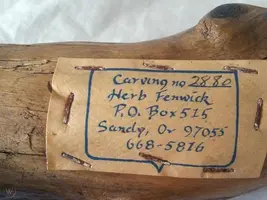 Carving no 2880
Herb Fenwick
P.O. Box 515
Sandy, Or 97055
668-5816